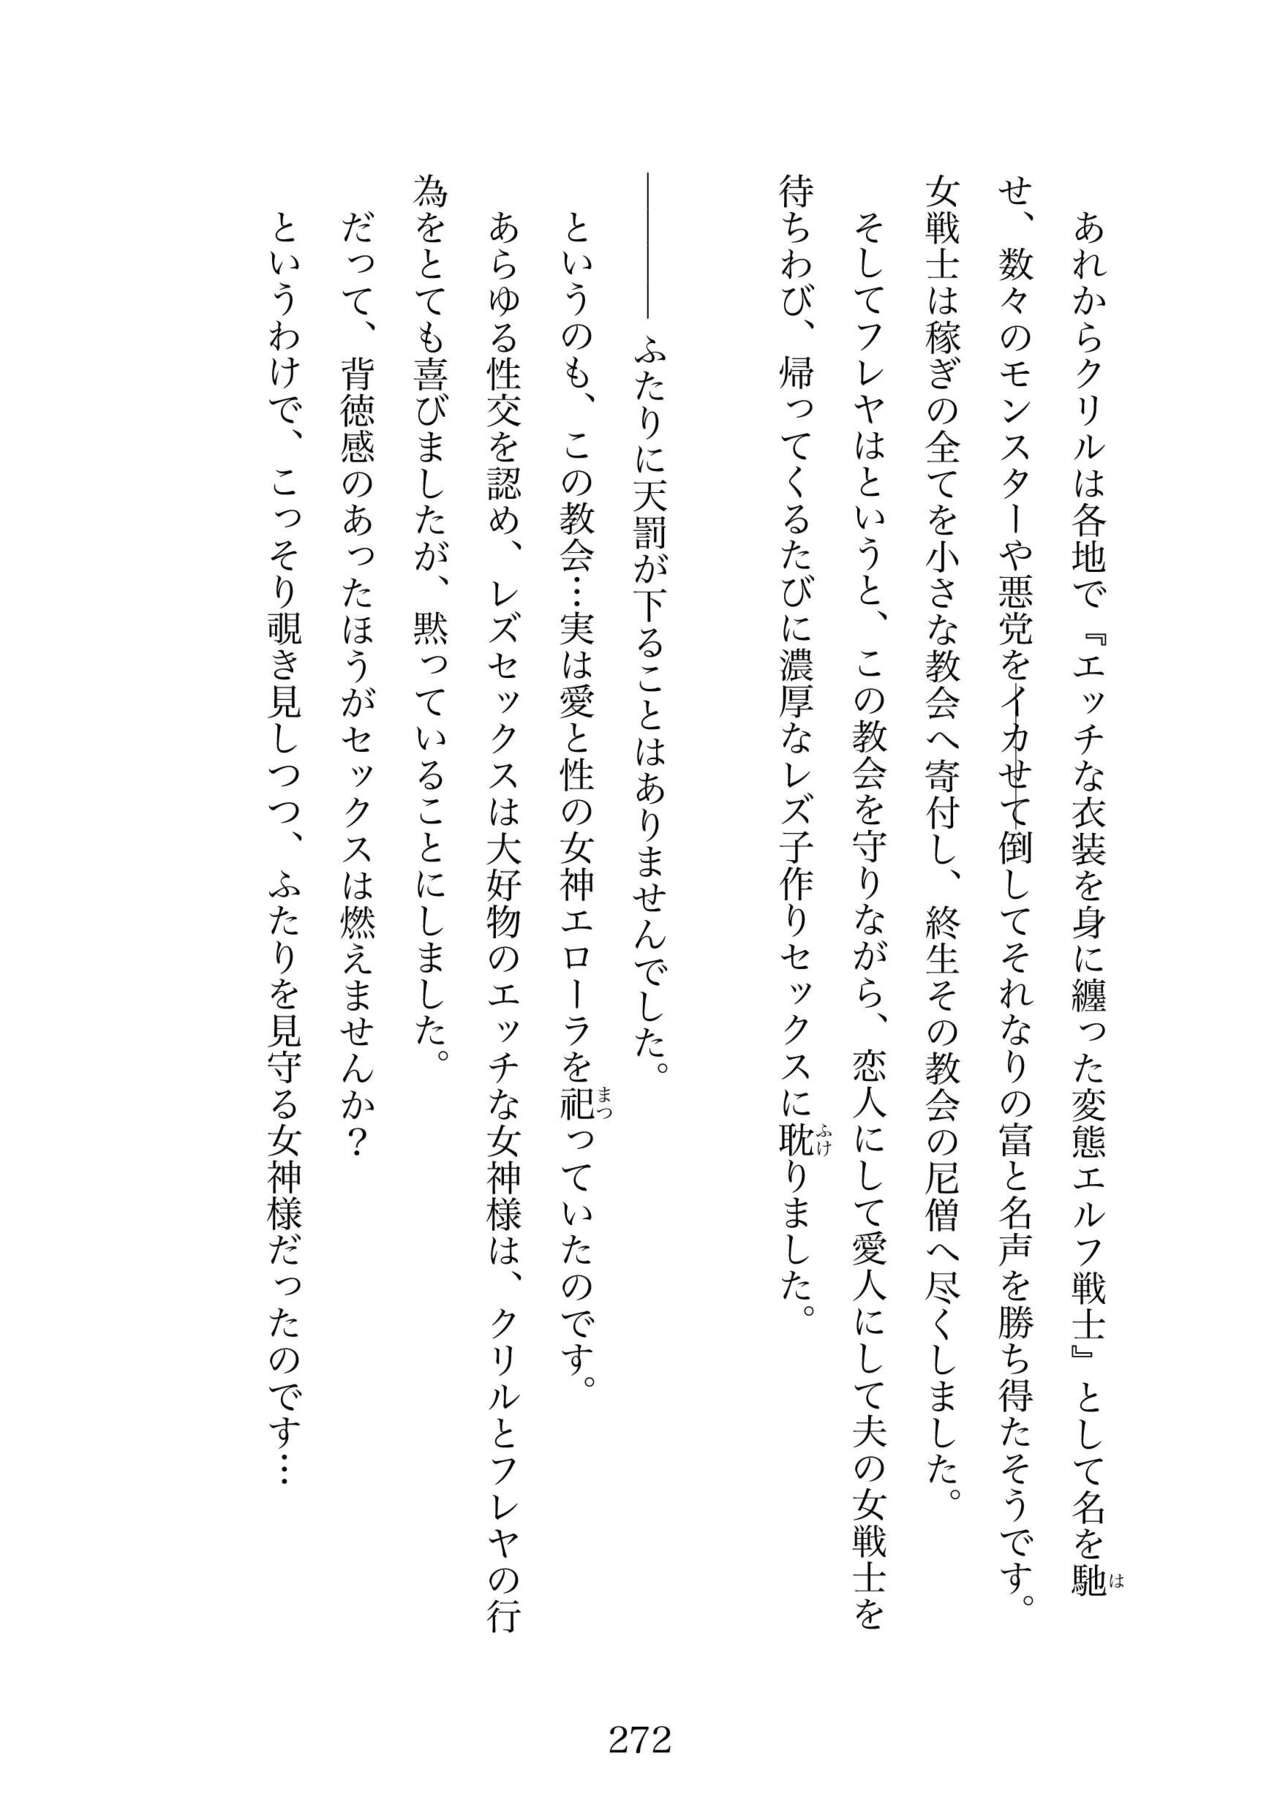 あれからクリルは各地で『エッチな衣装を身に纏った変態エルフ戦士』として名を馳
せ、数々のモンスターや悪党をイカせて倒してそれなりの富と名声を勝ち得たそうです。
女戦士は稼ぎの全てを小さな教会へ寄付し、終生その教会の尼僧へ尽くしました。
そしてフレヤはというと、この教会を守りながら、恋人にして愛人にして夫の女戦士を
待ちわび、帰ってくるたびに濃厚なレズ子作りセックスに耽りました。
――――ふたりに天罰が下ることはありませんでした。
というのも、この教会…実は愛と性の女神エローラを祀っていたのです。
あらゆる性交を認め、レズセックスは大好物のエッチな女神様は、クリルとフレヤの行
為をとても喜びましたが、黙っていることにしました。
だって、背徳感のあったほうがセックスは燃えませんか？
というわけで、こっそり覗き見しつつ、ふたりを見守る女神様だったのです…
は
ふけ
まつ
272